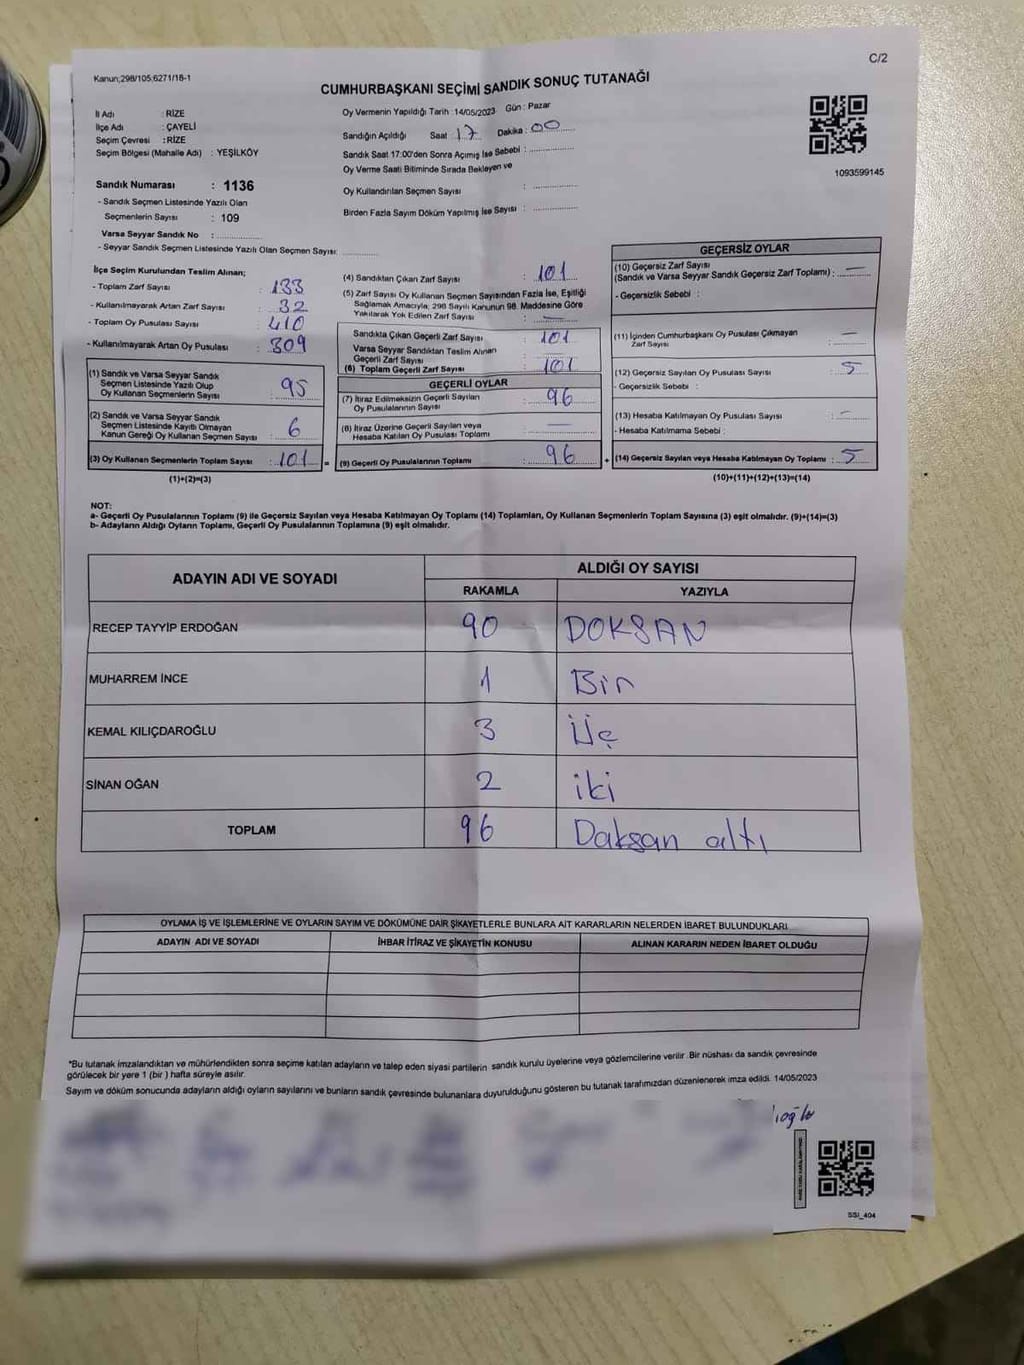 Kanun;298/105;6271/16-1
C/2
CUMHURBAŞKANI SEÇİMİ SANDIK SONUÇ TUTANAĞI
İl Adı : RİZE
İlçe Adı : ÇAYELİ
Seçim Çevresi : RİZE
Seçim Bölgesi (Mahalle Adı) : YEŞİLKÖY
Oy Vermenin Yapıldığı Tarih 14/05/2023 Gün : Pazar
Sandığın Açıldığı Saat 17 Dakika : 00
Sandık Saat 17:00'den Sonra Açımış İse Sebebi :
Oy Verme Saati Bitiminde Sırada Bekleyen ve
Oy Kullandırılan Seçmen Sayısı :
Birden Fazla Sayım Döküm Yapılmış İse Sayısı :
1093599145
Sandık Numarası : 1136
- Sandık Seçmen Listesinde Yazılı Olan
Seçmenlerin Sayısı : 109
Varsa Seyyar Sandık No :
- Seyyar Sandık Seçmen Listesinde Yazılı Olan Seçmen Sayısı:
İlçe Seçim Kurulundan Teslim Alınan;
- Toplam Zarf Sayısı : 133
- Kullanılmayarak Artan Zarf Sayısı : 32
- Toplam Oy Pusulası Sayısı : 410
- Kullanılmayarak Artan Oy Pusulası : 309
(1) Sandık ve Varsa Seyyar Sandık
Seçmen Listesinde Yazılı Olup
Oy Kullanan Seçmenlerin Sayısı : 95
(2) Sandık ve Varsa Seyyar Sandık
Seçmen Listesinde Kayıtlı Olmayan
Kanun Gereği Oy Kullanan Seçmen Sayısı : 6
(3) Oy Kullanan Seçmenlerin Toplam Sayısı : 101
(1)+(2)=(3)
=
(4) Sandıktan Çıkan Zarf Sayısı : 101
(5) Zarf Sayısı Oy Kullanan Seçmen Sayısından Fazla İse, Eşitliği
Sağlamak Amacıyla, 298 Sayılı Kanunun 98. Maddesine Göre
Yakılarak Yok Edilen Zarf Sayısı : —
Sandıkta Çıkan Geçerli Zarf Sayısı : 101
Varsa Seyyar Sandıktan Teslim Alınan
Geçerli Zarf Sayısı :
(6) Toplam Geçerli Zarf Sayısı : 101
GEÇERLİ OYLAR
(7) İtiraz Edilmeksizin Geçerli Sayılan
Oy Pusulalarının Sayısı : 96
(8) İtiraz Üzerine Geçerli Sayılan veya
Hesaba Katılan Oy Pusulası Toplamı : —
(9) Geçerli Oy Pusulalarının Toplamı : 96
+
GEÇERSİZ OYLAR
(10) Geçersiz Zarf Sayısı
(Sandık ve Varsa Seyyar Sandık Geçersiz Zarf Toplamı) : —
- Geçersizlik Sebebi :
(11) İçinden Cumhurbaşkanı Oy Pusulası Çıkmayan
Zarf Sayısı : —
(12) Geçersiz Sayılan Oy Pusulası Sayısı : 5
- Geçersizlik Sebebi :
(13) Hesaba Katılmayan Oy Pusulası Sayısı : -
- Hesaba Katılmama Sebebi :
(14) Geçersiz Sayılan veya Hesaba Katılmayan Oy Toplamı : 5
(10)+(11)+(12)+(13)=(14)
NOT:
a- Geçerli Oy Pusulalarının Toplamı (9) ile Geçersiz Sayılan veya Hesaba Katılmayan Oy Toplamı (14) Toplamları, Oy Kullanan Seçmenlerin Toplam Sayısına (3) eşit olmalıdır. (9)+(14)=(3)
b- Adayların Aldığı Oyların Toplamı, Geçerli Oy Pusulalarının Toplamına (9) eşit olmalıdır.
ADAYIN ADI VE SOYADI
ALDIĞI OY SAYISI
RAKAMLA YAZIYLA
RECEP TAYYİP ERDOĞAN 90 DOKSAN
MUHARREM İNCE 1 Bir
KEMAL KILIÇDAROĞLU 3 Üç
SİNAN OĞAN 2 iki
TOPLAM 96 Daksan altı
OYLAMA İŞ VE İŞLEMLERİNE VE OYLARIN SAYIM VE DÖKÜMÜNE DAİR ŞİKAYETLERLE BUNLARA AİT KARARLARIN NELERDEN İBARET BULUNDUKLARI
ADAYIN ADI VE SOYADI İHBAR İTİRAZ VE ŞİKAYETİN KONUSU ALINAN KARARIN NEDEN İBARET OLDUĞU
*Bu tutanak imzalandıktan ve mühürlendikten sonra seçime katılan adayların ve talep eden siyasi partilerin sandık kurulu üyelerine veya gözlemcilerine verilir. Bir nüshası da sandık çevresinde
görülecek bir yere 1 (bir ) hafta süreyle asılır.
Sayım ve döküm sonucunda adayların aldığı oyların sayılarını ve bunların sandık çevresinde bulunanlara duyurulduğunu gösteren bu tutanak tarafımızdan düzenlenerek imza edildi. 14/05/2023
ıoğlu
SSI_404